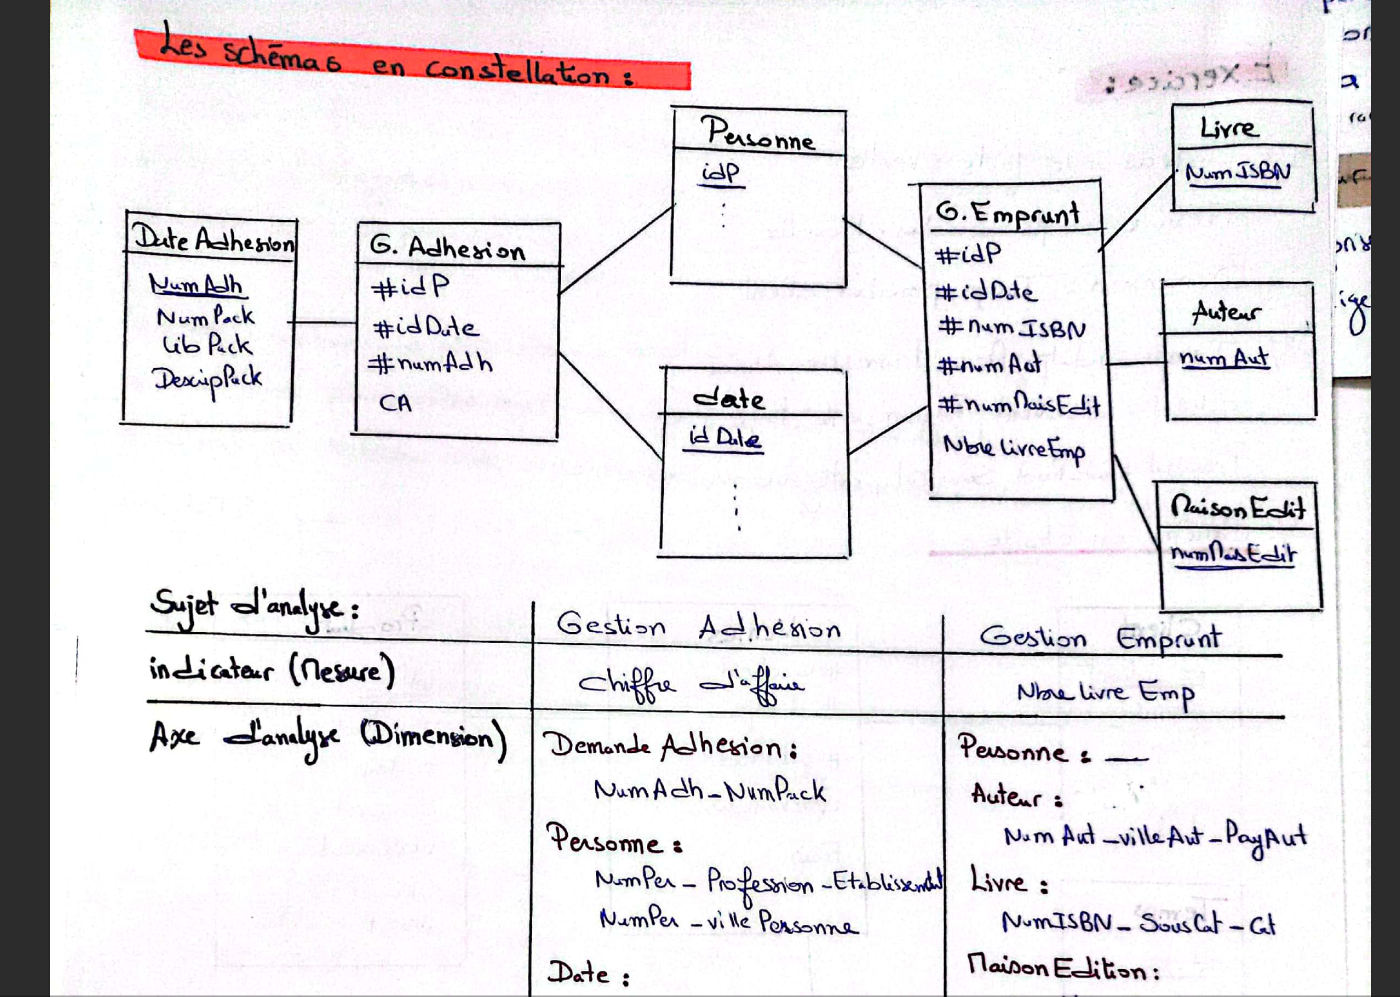 Les schémas en constellation :
Exercice :
Personne
idP
Livre
Num ISBN
Date Adhesion
Num Adh
Num Pack
Lib Pack
DescripPack
G. Adhesion
#idP
#idDate
#numAdh
CA
date
idDate
G. Emprunt
#idP
#idDate
#num ISBN
#numAut
#numMaisEdit
Nbre livreEmp
Auteur
num Aut
Maison Edit
numMaisEdit
Sujet d'analyse :
Gestion Adhésion
Gestion Emprunt
indicateur (Mesure)
Chiffre d'affaire
Nbre livre Emp
Axe d'analyse (Dimension)
Demande Adhesion :
NumAdh - NumPack
Personne :
NumPer - Profession - Etablissement
NumPer - ville Personne
Date :
Personne : —
Auteur :
Num Aut - ville Aut - PayAut
Livre :
NumISBN - SousCat - Cat
Maison Edition :